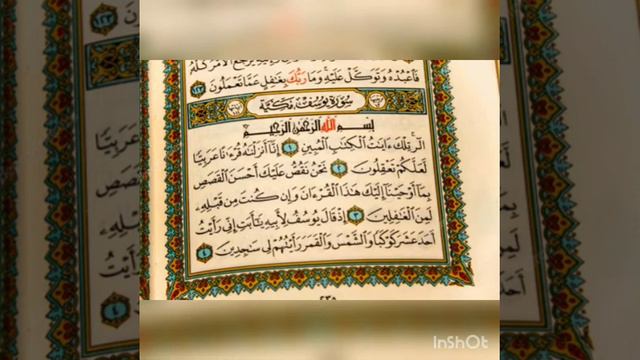 يُرْجَعُ الْأَمْرُ كُلُّهُ
فَاعْبُدْهُ وَتَوَكَّلْ عَلَيْهِ وَمَا رَبُّكَ بِغَٰفِلٍ عَمَّا تَعْمَلُونَ ١٢٣
سورة يوسف مكية
بِسْمِ اللَّهِ الرَّحْمَٰنِ الرَّحِيمِ
الٓر تِلْكَ ءَايَٰتُ الْكِتَٰبِ الْمُبِينِ ١ إِنَّا أَنزَلْنَٰهُ قُرْءَٰنًا عَرَبِيًّا
لَّعَلَّكُمْ تَعْقِلُونَ ٢ نَحْنُ نَقُصُّ عَلَيْكَ أَحْسَنَ الْقَصَصِ
بِمَا أَوْحَيْنَا إِلَيْكَ هَٰذَا الْقُرْءَانَ وَإِن كُنتَ مِن قَبْلِهِ
لَمِنَ الْغَٰفِلِينَ ٣ إِذْ قَالَ يُوسُفُ لِأَبِيهِ يَٰأَبَتِ إِنِّي رَأَيْتُ
أَحَدَ عَشَرَ كَوْكَبًا وَالشَّمْسَ وَالْقَمَرَ رَأَيْتُهُمْ لِي سَٰجِدِينَ ٤
٢٣٥
InShOt